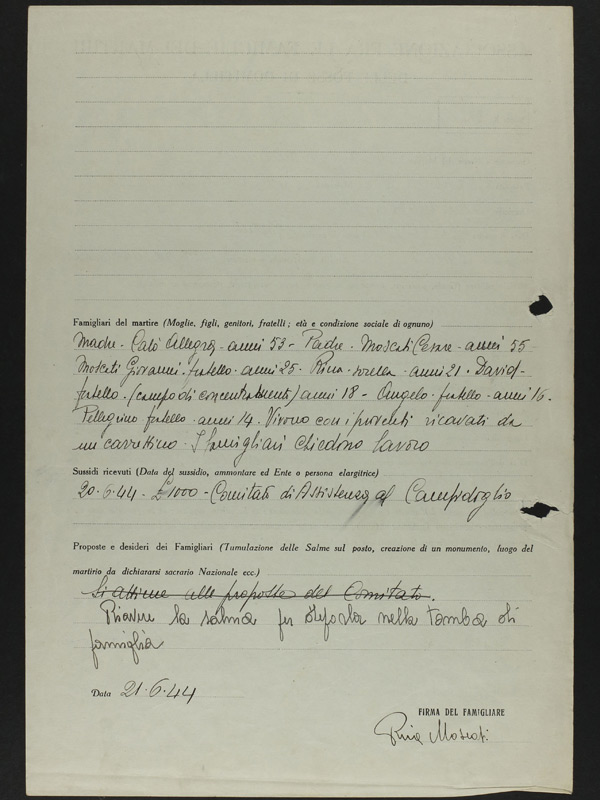 Famigliari del martire (Moglie, figli, genitori, fratelli; età e condizione sociale di ognuno)
Madre Calò Allegra - anni 53 - Padre - Moscati Cesare - anni 55
Moscati Giovanni - fratello - anni 25 - Rina - sorella - anni 21 - David -
fratello - (campo di concentramento) anni 18 - Angelo - fratello - anni 16 -
Pellegrino - fratello - anni 14 - Vivono con i proventi ricavati da
un carrettino - I famigliari chiedono lavoro
Sussidi ricevuti (Data del sussidio, ammontare ed Ente o persona elargitrice)
20.6.44 - £ 1000 - Comitati di Assistenza al Campidoglio
Proposte e desideri dei Famigliari (Tumulazione delle Salme sul posto, creazione di un monumento, luogo del
martirio da dichiararsi sacrario Nazionale ecc.)
Si attiene alle proposte del Comitato.
Riavere la salma per deporla nella tomba di
famiglia
Data 21.6.44
FIRMA DEL FAMIGLIARE
Rina Moscati